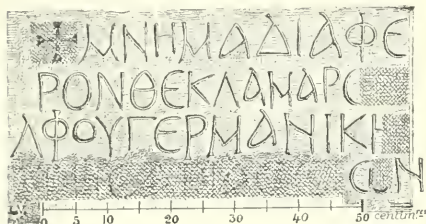 ✝ΜΝΗΜΑΔΙΑΦΕ
ΡΟΝΘΕΚΛΑΜΑΡC
ΛΦΟΥΓΕΡΜΑΝΙΚΗ
ωΝ
0 5 10 20 30 40 50 centim.